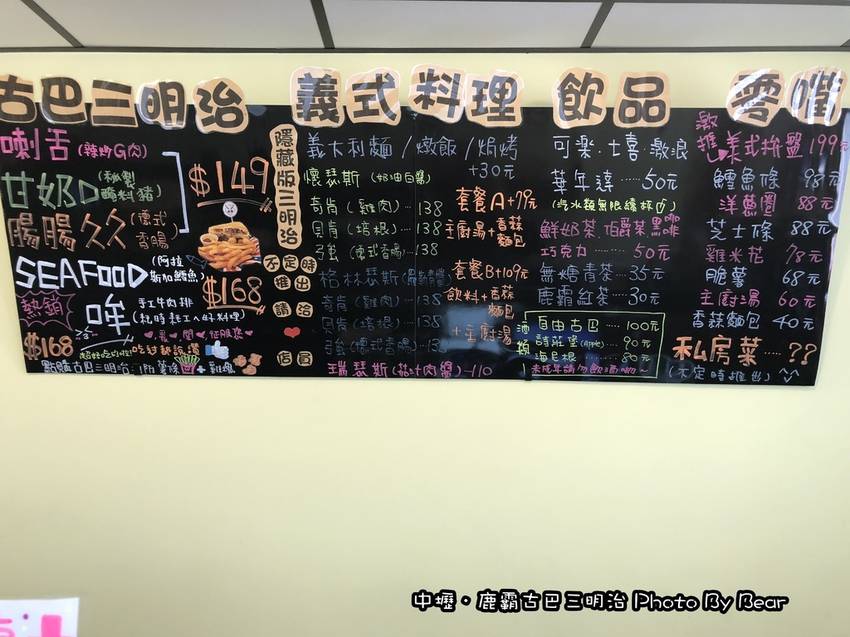 古巴三明治
喇舌(辣炒G肉)
甘奶D(秘製醃料豬)
腸腸久久(德式香腸)
$149
SEAFOOD(阿拉斯加鱈魚)
$168
熱銷
哞 手工牛肉排
$168
點購古巴三明治:附薯條+雞塊
隱藏版三明治
不定時
推出
請洽
店員
義式料理
義大利麵/燉飯/焗烤
+30元
懷瑟斯(奶油白醬)
奇肯(雞肉)…138
貝肯(培根)…138
彡強(德式香腸)…138
格林瑟斯
奇肯(雞肉)…138
貝肯(培根)…138
彡強(德式香腸)…138
瑞瑟斯(茄汁肉醬)-110
套餐A+79元
主廚湯+香蒜麵包
套餐B+109元
飲料+香蒜麵包
+主廚湯
飲品
可樂.七喜.激浪
華年達……50元
(汽水類無限續杯)
鮮奶茶 伯爵茶 黑咖啡
巧克力……50元
無糖青茶…35元
鹿霸紅茶…30元
酒類
自由古巴……100元
詩莊堡(Apple)…90元
海尼根……80元
未成年請勿飲酒喲~
零嘴
激推 美式拚盤 199元
鱈魚條 98元
洋蔥圈 88元
芝士條 88元
雞米花 78元
脆薯 68元
主廚湯 60元
香蒜麵包 40元
私房菜……??
(不定時推出)
中壢‧鹿霸古巴三明治 Photo By Bear